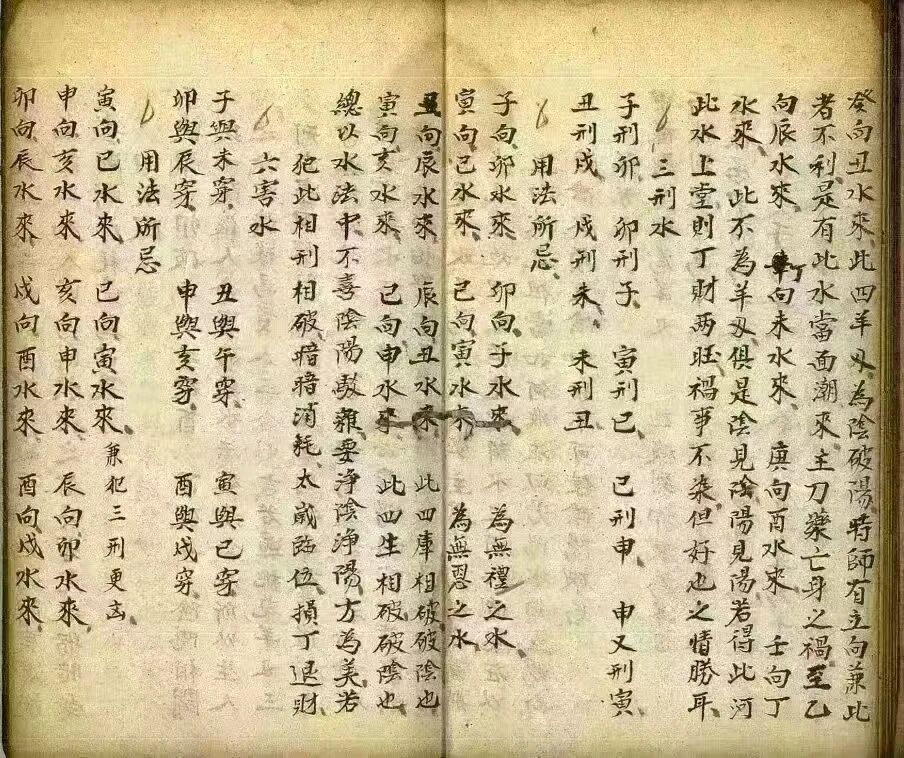 癸向丑水來此四羊刃為陰破陽時師有立向兼此
者不利是有此水當面潮來主刀藥亡身之禍至乙
向辰水來丁向未水來庚向酉水來壬向丁
水來此不為羊刃俱是陰見陰陽見陽若得此河
此水上堂則丁財兩旺禍事不染但好也之情勝耳
三刑水
子刑卯 卯刑子 寅刑巳 巳刑申 申又刑寅
丑刑戌 戌刑未 未刑丑
用法所忌
子向卯水來 卯向子水來 為無禮之水
寅向巳水來 巳向寅水來 為無恩之水
丑向辰水來 辰向丑水來 此四庫相破破陰也
寅向亥水來 巳向申水來 此四生相破破陰也
總以水法中不喜陰陽駁雜要淨陰淨陽方為美若
犯此相刑相破暗暗消耗太歲臨位損丁退財
六害水
子與未穿 丑與午穿 寅與巳穿
卯與辰穿 申與亥穿 酉與戌穿
用法所忌
寅向巳水來 巳向寅水來兼犯三刑更凶
申向亥水來 亥向申水來 辰向卯水來
卯向辰水來 戌向酉水來 酉向戌水來